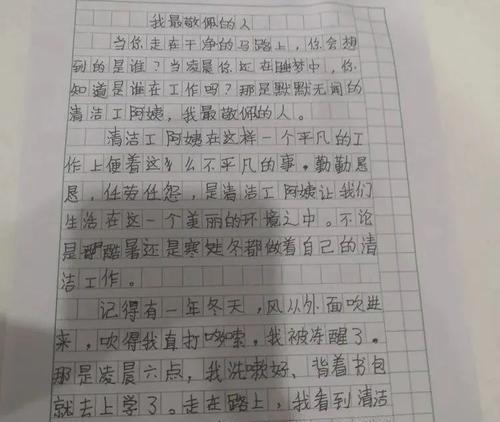 我最敬佩的人
当你走在干净的马路上，你会想
到的是谁？当凌晨你还在睡梦中，你
知道是谁在工作吗？那是默默无闻的
清洁工阿姨，我最敬佩的人。
清洁工阿姨在这样一个平凡的工
作上便着这么不平凡的事。勤勤恳
恳，任劳任怨，是清洁工阿姨让我们
生活在这一个美丽的环境之中。不论
是酷暑还是寒冬都做着自己的清
洁工作。
记得有一年冬天，风从外面吹进
来，吹得我直打哆嗦，我被冻醒了。
那是凌晨六点，我洗嗽好、背着书包
就去上学了。走在路上，我看到清洁